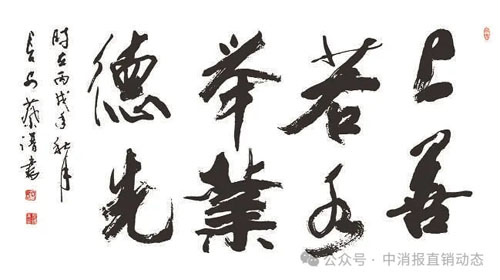 上善
若水
举業
德先
時在丙戌年秋月
長安蔡谞書
公众号 · 中消报直销动态